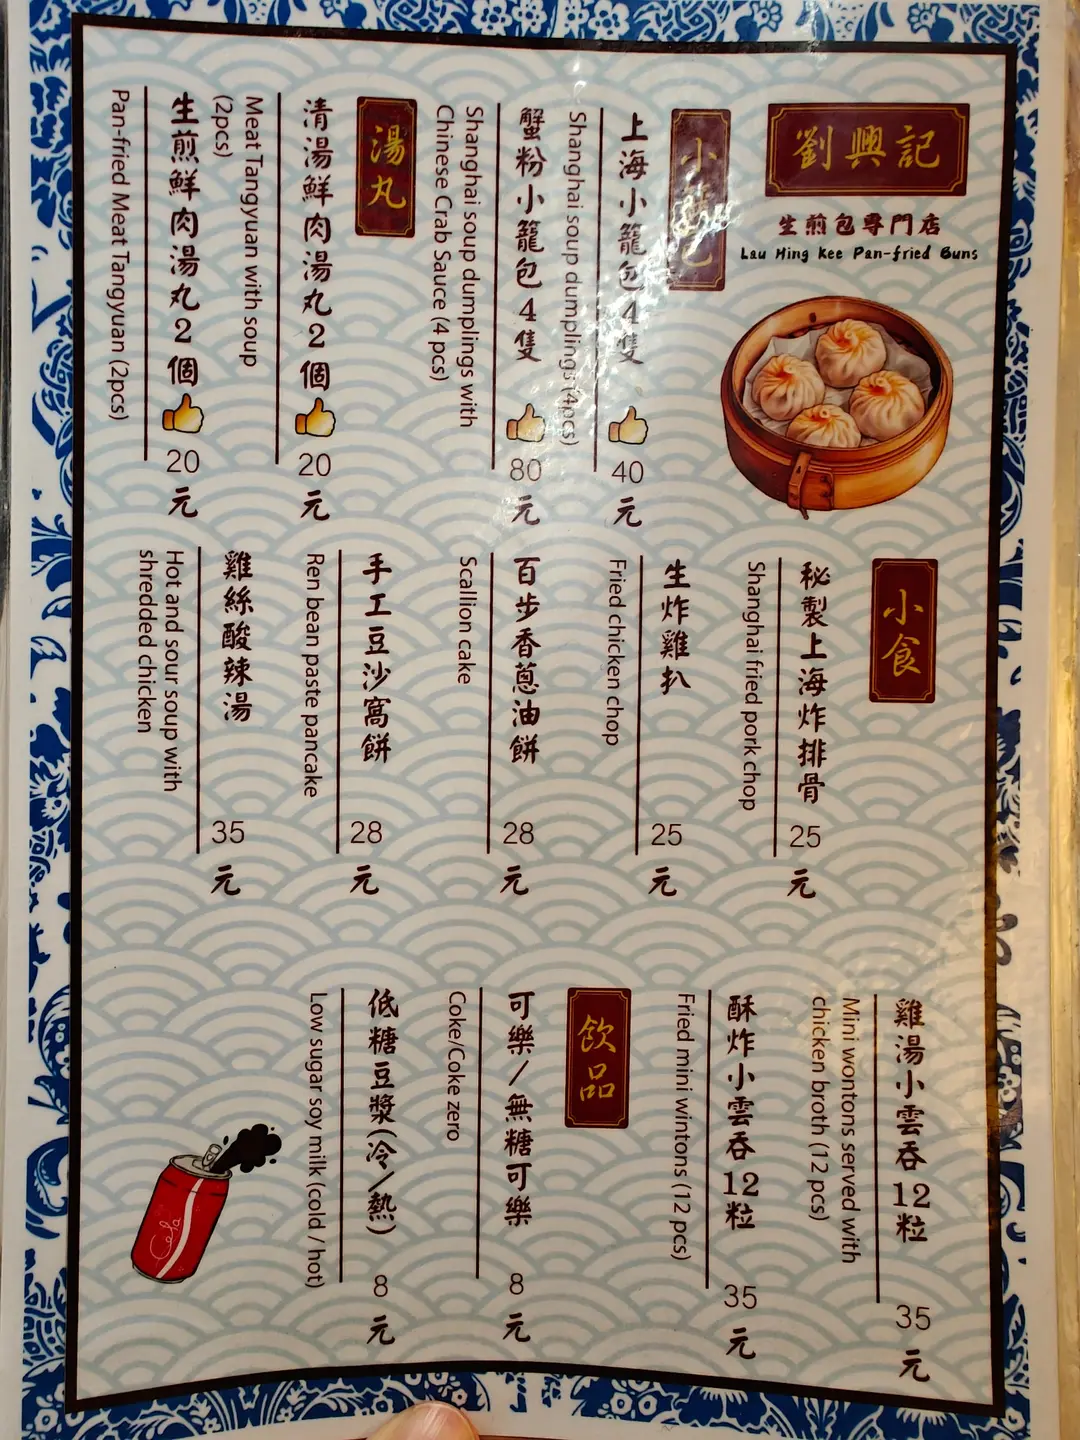 劉興記
生煎包專門店
Lau Hing Kee Pan-fried Buns
小籠包
上海小籠包4隻 👍 40元
Shanghai soup dumplings (4pcs)
蟹粉小籠包4隻 👍 80元
Shanghai soup dumplings with
Chinese Crab Sauce (4 pcs)
湯丸
清湯鮮肉湯丸2個 👍 20元
Meat Tangyuan with soup
(2pcs)
生煎鮮肉湯丸2個 👍 20元
Pan-fried Meat Tangyuan (2pcs)
小食
秘製上海炸排骨 25元
Shanghai fried pork chop
生炸雞扒 25元
Fried chicken chop
百步香蔥油餅 28元
Scallion cake
手工豆沙窩餅 28元
Ren bean paste pancake
雞絲酸辣湯 35元
Hot and sour soup with
shredded chicken
雞湯小雲吞12粒 35元
Mini wontons served with
chicken broth (12 pcs)
酥炸小雲吞12粒 35元
Fried mini wintons (12 pcs)
飲品
可樂/無糖可樂 8元
Coke/Coke zero
低糖豆漿(冷/熱) 8元
Low sugar soy milk (cold / hot)
Cola